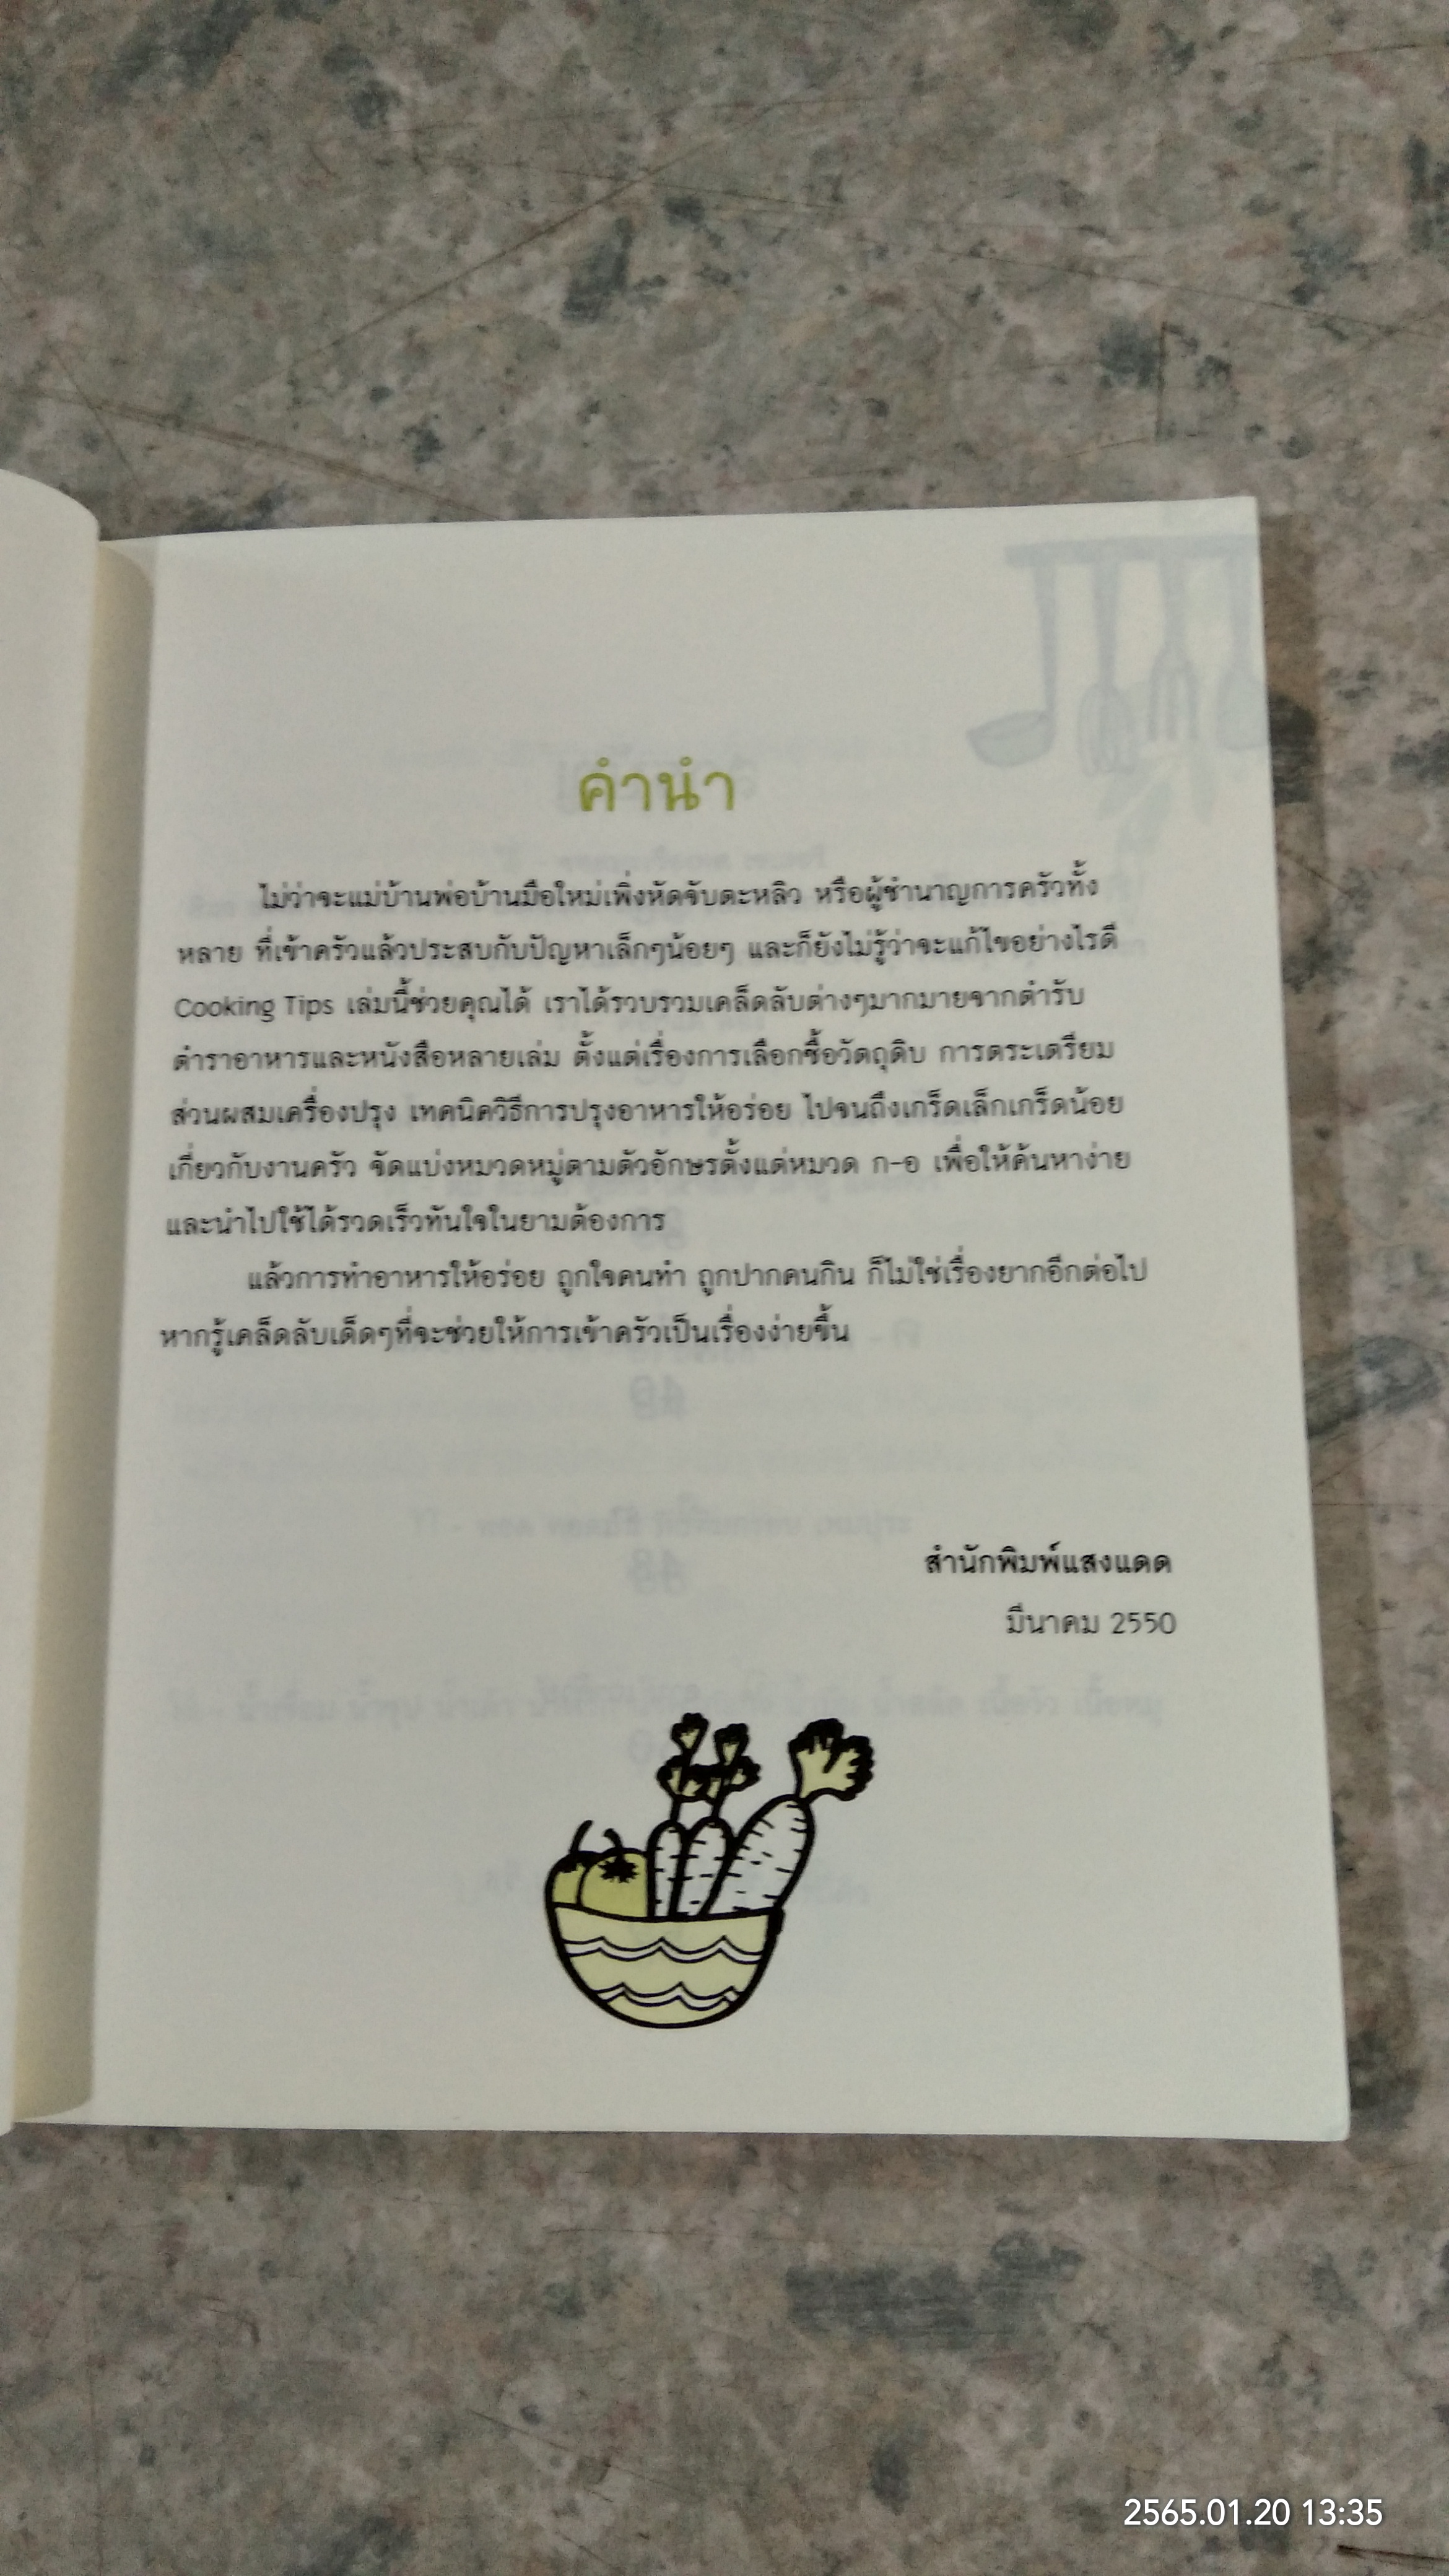 คำนำ
ไม่ว่าจะแม่บ้านพ่อบ้านมือใหม่เพิ่งหัดจับตะหลิว หรือผู้ชำนาญการครัวทั้ง
หลาย ที่เข้าครัวแล้วประสบกับปัญหาเล็กๆน้อยๆ และก็ยังไม่รู้ว่าจะแก้ไขอย่างไรดี
Cooking Tips เล่มนี้ช่วยคุณได้ เราได้รวบรวมเคล็ดลับต่างๆมากมายจากตำรับ
ตำราอาหารและหนังสือหลายเล่ม ตั้งแต่เรื่องการเลือกซื้อวัตถุดิบ การตระเตรียม
ส่วนผสมเครื่องปรุง เทคนิควิธีการปรุงอาหารให้อร่อย ไปจนถึงเกร็ดเล็กเกร็ดน้อย
เกี่ยวกับงานครัว จัดแบ่งหมวดหมู่ตามตัวอักษรตั้งแต่หมวด ก-อ เพื่อให้ค้นหาง่าย
และนำไปใช้ได้รวดเร็วทันใจในยามต้องการ
แล้วการทำอาหารให้อร่อย ถูกใจคนทำ ถูกปากคนกิน ก็ไม่ใช่เรื่องยากอีกต่อไป
หากรู้เคล็ดลับเด็ดๆที่จะช่วยให้การเข้าครัวเป็นเรื่องง่ายขึ้น
สำนักพิมพ์แสงแดด
มีนาคม 2550
2565.01.20 13:35